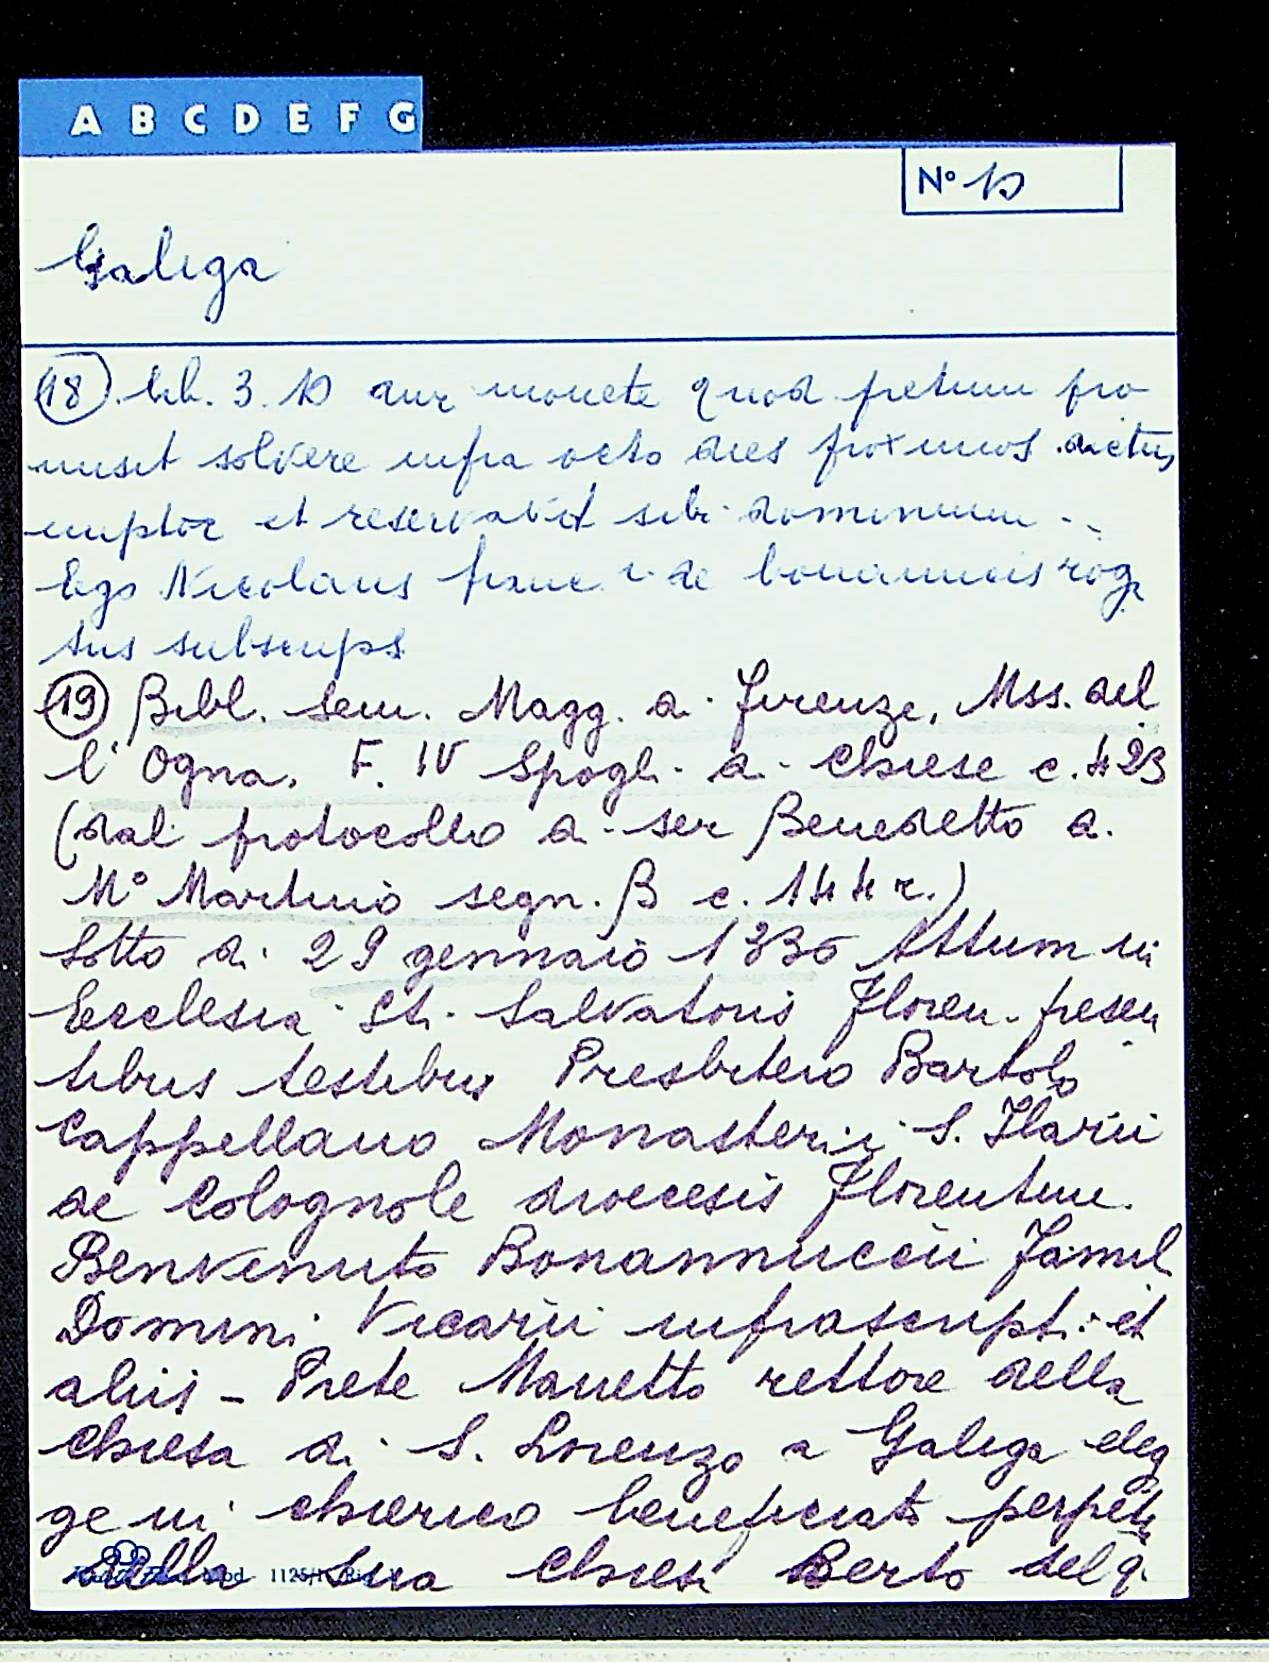 A B C D E F G
N° 10
Galiga
(18). lib. 3. 10 aur monete quod pretium pro
misit solvere infra octo dies proximos dictus
emptor et reservavit sibi dominium ..
Ego Nicolaus de bonannucis rog
tus subscripsi
(19) Bibl. Sem. Magg. di Firenze, Mss. del
l'Ogna, F. IV Spogli di Chiese c. 423
(dal protocollo di ser Benedetto di
M° Martino segn. B c. 144 r.)
Sotto di 29 gennaio 1336 Attum in
Ecclesia Sti. Salvatoris Floren. presen
tibus testibus Presbitero Bartolo
Cappellano Monasterii S. Ilarii
de Colognole diocesis Florentine.
Benvenuto Bonannuccii famil
Domini Vicarii infrascripti et
aliis - Prete Manetto rettore della
chiesa di S. Lorenzo a Galiga eleg
ge in chierico beneficiato perpetu
della sua chiesa Berto del q.
1125/1